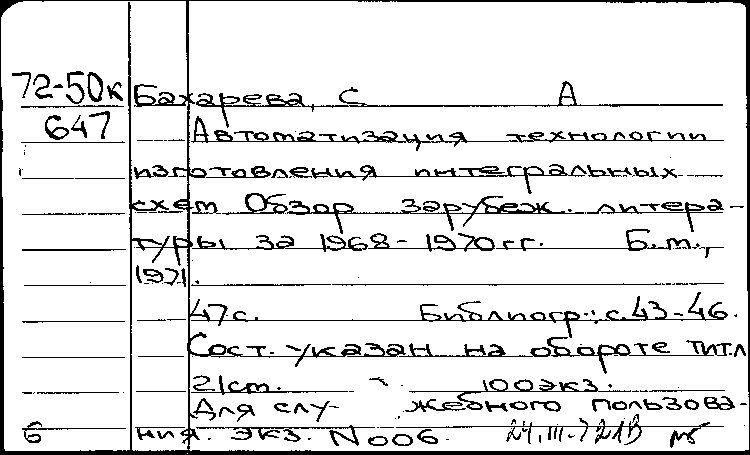 72-50к Бахарева, С. А
647 Автоматизация технологии
изготовления интегральных
схем Обзор зарубеж. литера-
туры за 1968-1970 гг. Б.т.,
1971.
47с. Библиогр.: с.43-46.
Сост. указан на обороте тит.л
21см. 100экз.
Для слу- жебного пользова-
6 ния. экз. N006. 24.III-72